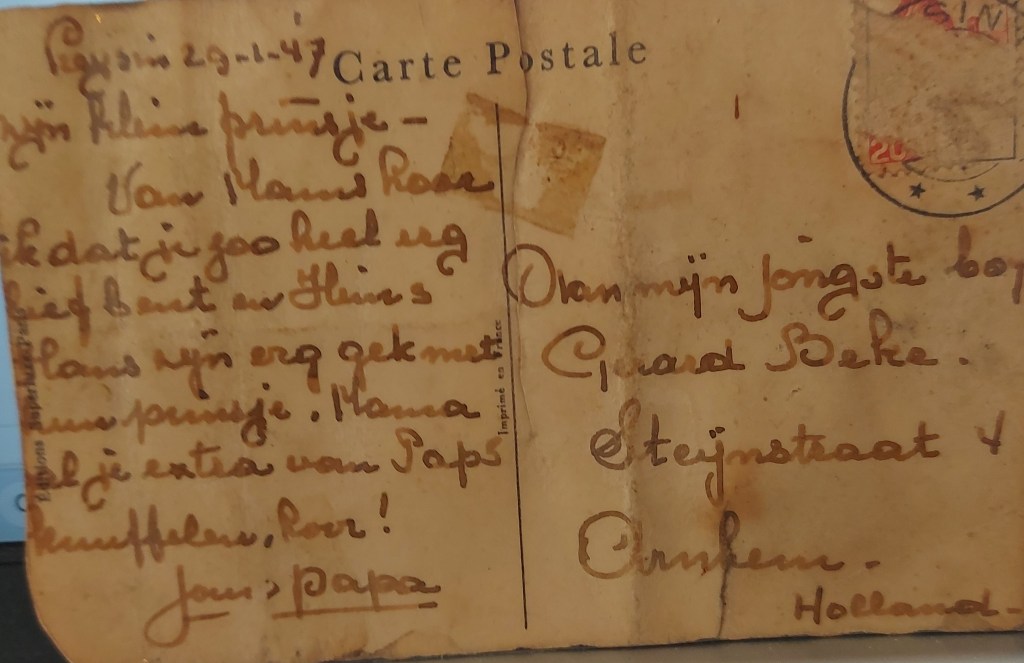 29-1-47
Carte Postale
mijn klein prinsje -
Van Mams hoor
ik dat je zoo heel erg
lief bent en Heins
Hans zijn erg gek met
hun prinsje. Mama
zal je extra van Paps
knuffelen, hoor!
Jouw papa
Editions Superluxe Paris
Imprimé en France
GIN
20
Aan mijn jongste boy
Gerard Beke.
Steijnstraat 4
Arnhem.
Holland-